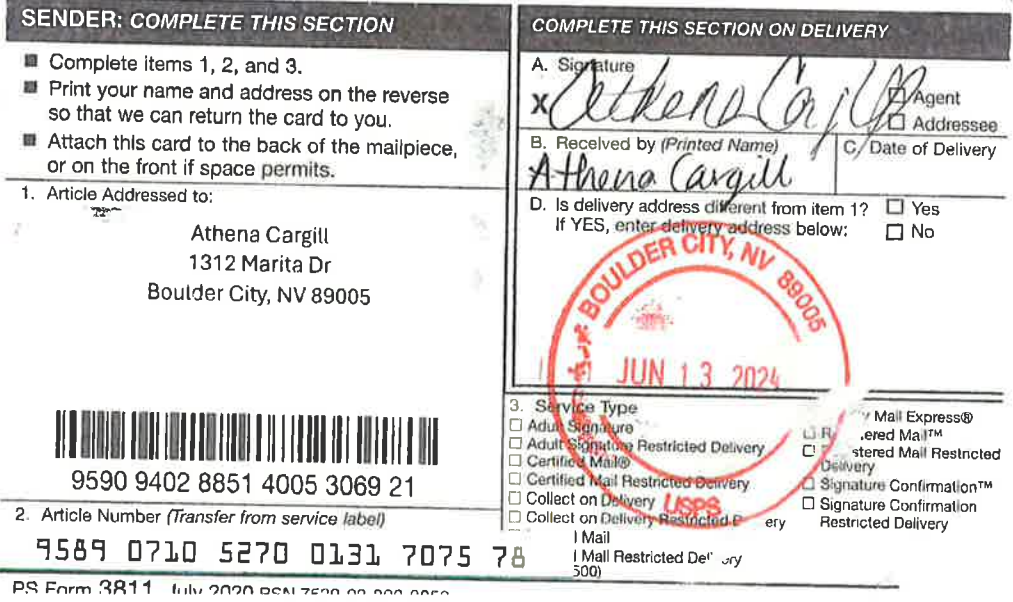 SENDER: COMPLETE THIS SECTION
Complete items 1, 2, and 3.
Print your name and address on the reverse
so that we can return the card to you.
Attach this card to the back of the mailpiece,
or on the front if space permits.
1. Article Addressed to:
Athena Cargill
1312 Marita Dr
Boulder City, NV 89005
9590 9402 8851 4005 3069 21
2. Article Number (Transfer from service label)
9589 0710 5270 0131 7075 78
PS Form 3811, July 2020 PSN
COMPLETE THIS SECTION ON DELIVERY
A. Signature
X Athena Cargill
Agent
Addressee
B. Received by (Printed Name)
C. Date of Delivery
Athena Cargill
D. Is delivery address different from item 1? Yes
If YES, enter delivery address below: No
BOULDER CITY, NV 89005
JUN 13 2024
USPS
3. Service Type
Adult Signature
Adult Signature Restricted Delivery
Certified Mail®
Certified Mail Restricted Delivery
Collect on Delivery
Collect on Delivery Restricted
Mail
Mail Restricted
500)
Mail Express®
Mail™
Mail Restricted
Delivery
Signature Confirmation™
Signature Confirmation
Restricted Delivery